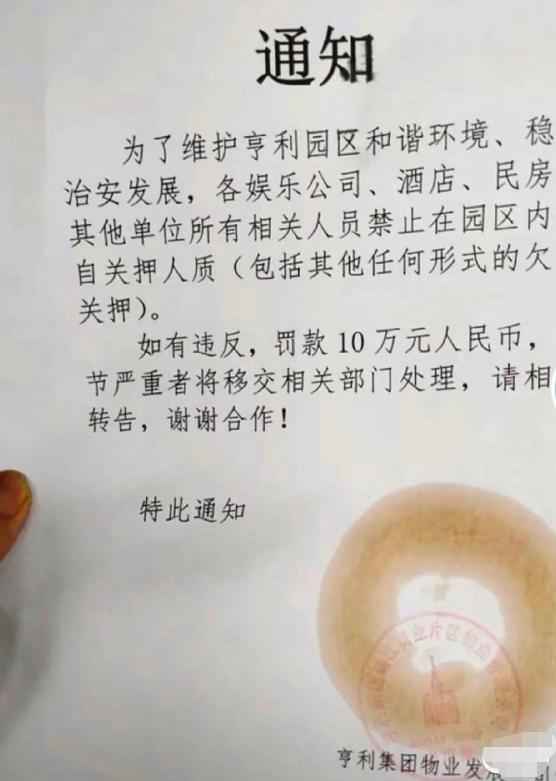 通知
为了维护亨利园区和谐环境、稳
治安发展，各娱乐公司、酒店、民房
其他单位所有相关人员禁止在园区内
自关押人质（包括其他任何形式的欠
关押）。
如有违反，罚款10万元人民币，
节严重者将移交相关部门处理，请相
转告，谢谢合作！
特此通知
亨利集团物业发展